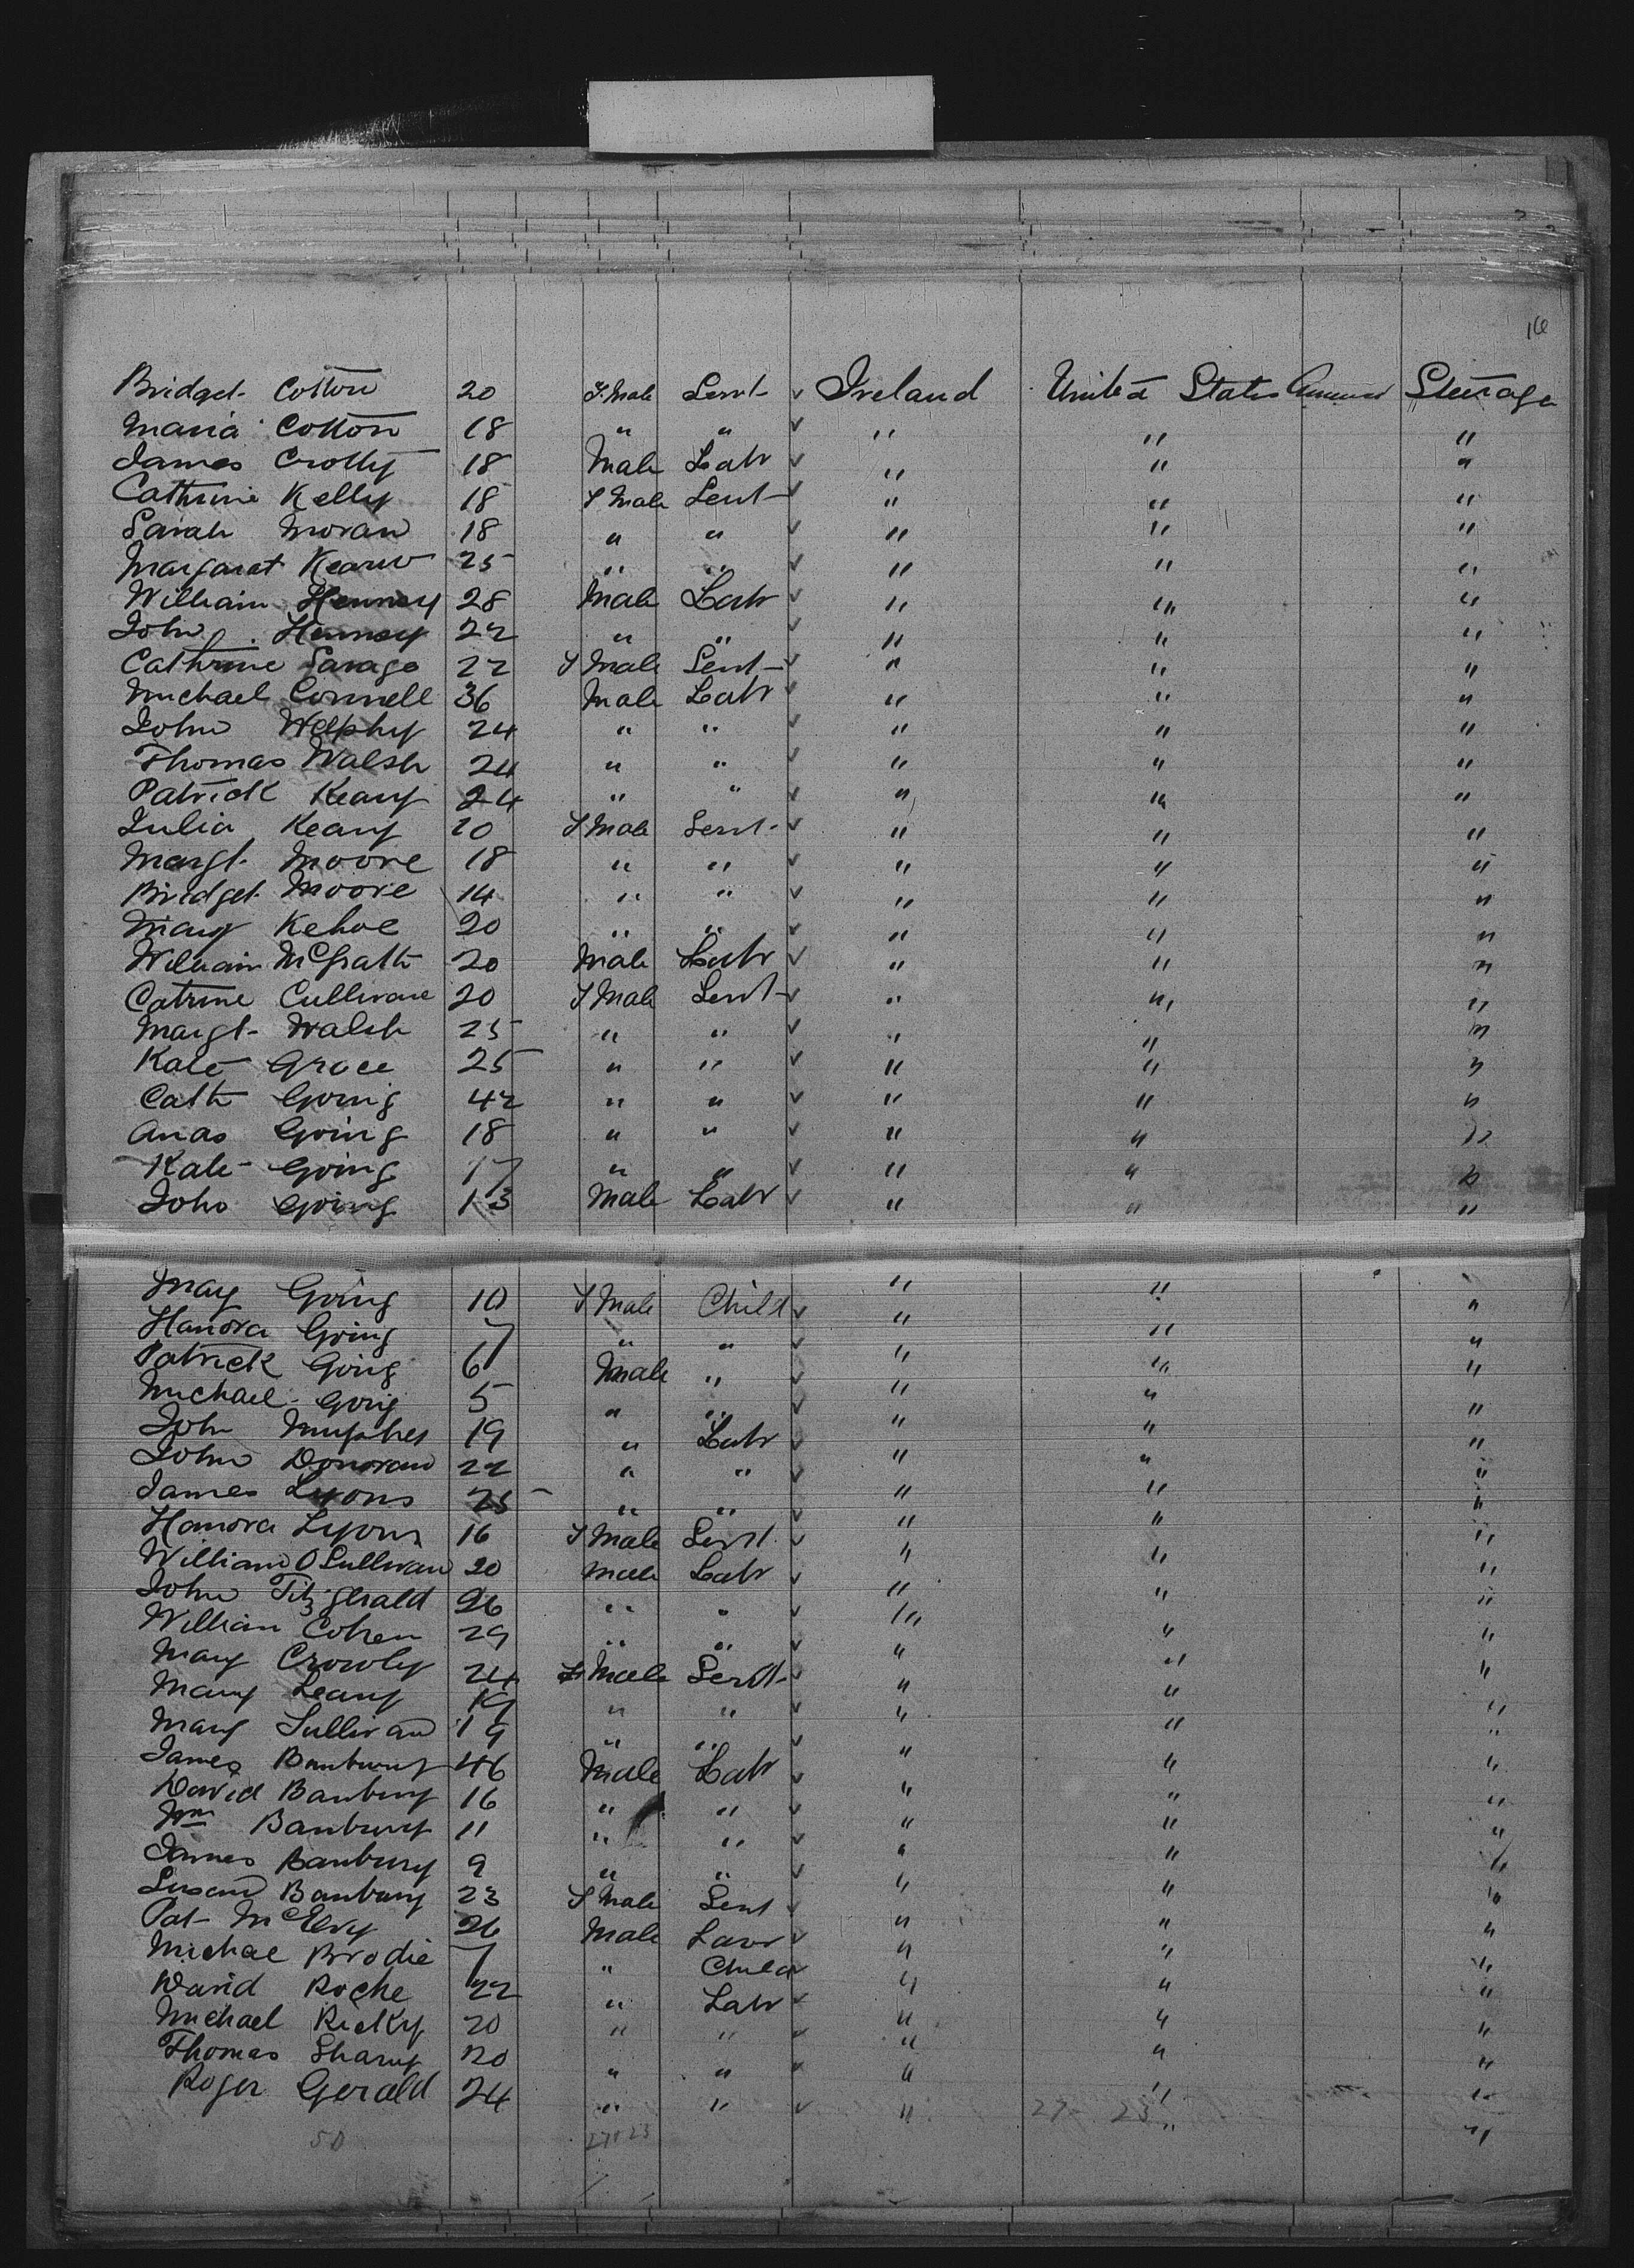 16
Bridget Cotton 20 F.Male Servt ✓ Ireland United States America Steerage
Maria Cotton 18 " " ✓ " " "
James Crotty 18 Male Labr ✓ " " "
Cathrine Kelly 18 F Male Servt ✓ " " "
Sarah Moran 18 " " ✓ " " "
Margaret 25 " " ✓ " " "
William Hennesy 28 Male Labr ✓ " " "
John Hennesy 22 " " ✓ " " "
Cathrine Savage 22 F Male Servt ✓ " " "
Michael Connell 36 Male Labr ✓ " " "
John Welphy 24 " " ✓ " " "
Thomas Walsh 24 " " ✓ " " "
Patrick Keany 24 " " ✓ " " "
Julia Keany 20 F Male Servt ✓ " " "
Margt Moore 18 " " ✓ " " "
Bridget Moore 14 " " ✓ " " "
Mary Kehoe 20 " " ✓ " " "
William McGrath 20 Male Labr ✓ " " "
Catrine Cullivane 20 F Male Servt ✓ " " "
Margt Walsh 25 " " ✓ " " "
Kate Grace 25 " " ✓ " " "
Cath Going 42 " " ✓ " " "
Anas Going 18 " " ✓ " " "
Kate Going 17 " " ✓ " " "
John Going 13 Male Labr ✓ " " "
May Going 10 F Male Child ✓ " " "
Hanora Going 7 " " ✓ " " "
Patrick Going 6 Male " ✓ " " "
Michael Going 5 " " ✓ " " "
John 19 " Labr ✓ " " "
John Donovan 22 " " ✓ " " "
James Lyons 25 " " ✓ " " "
Hanora Lyons 16 F Male Servt ✓ " " "
William O Sullivan 20 Male Labr ✓ " " "
John Fitzgerald 26 " " ✓ " " "
William Cohen 29 " " ✓ " " "
Mary Crowly 24 F Male Servt ✓ " " "
Mary Leany 19 " " ✓ " " "
Mary Sullivan 19 " " ✓ " " "
James Banbury 46 Male Labr ✓ " " "
David Banbury 16 " " ✓ " " "
Wm Banbury 11 " " ✓ " " "
James Banbury 9 " " ✓ " " "
Susan Banbury 23 F Male Servt ✓ " " "
Pat McEvy 26 Male Labr ✓ " " "
Michae Brodie 7 " Child ✓ " " "
David Roche 22 " Labr ✓ " " "
Michael Ricky 20 " " ✓ " " "
Thomas Sharry 20 " " ✓ " " "
Roger Gerald 24 " " ✓ " " "
50 27 23 27 - 23